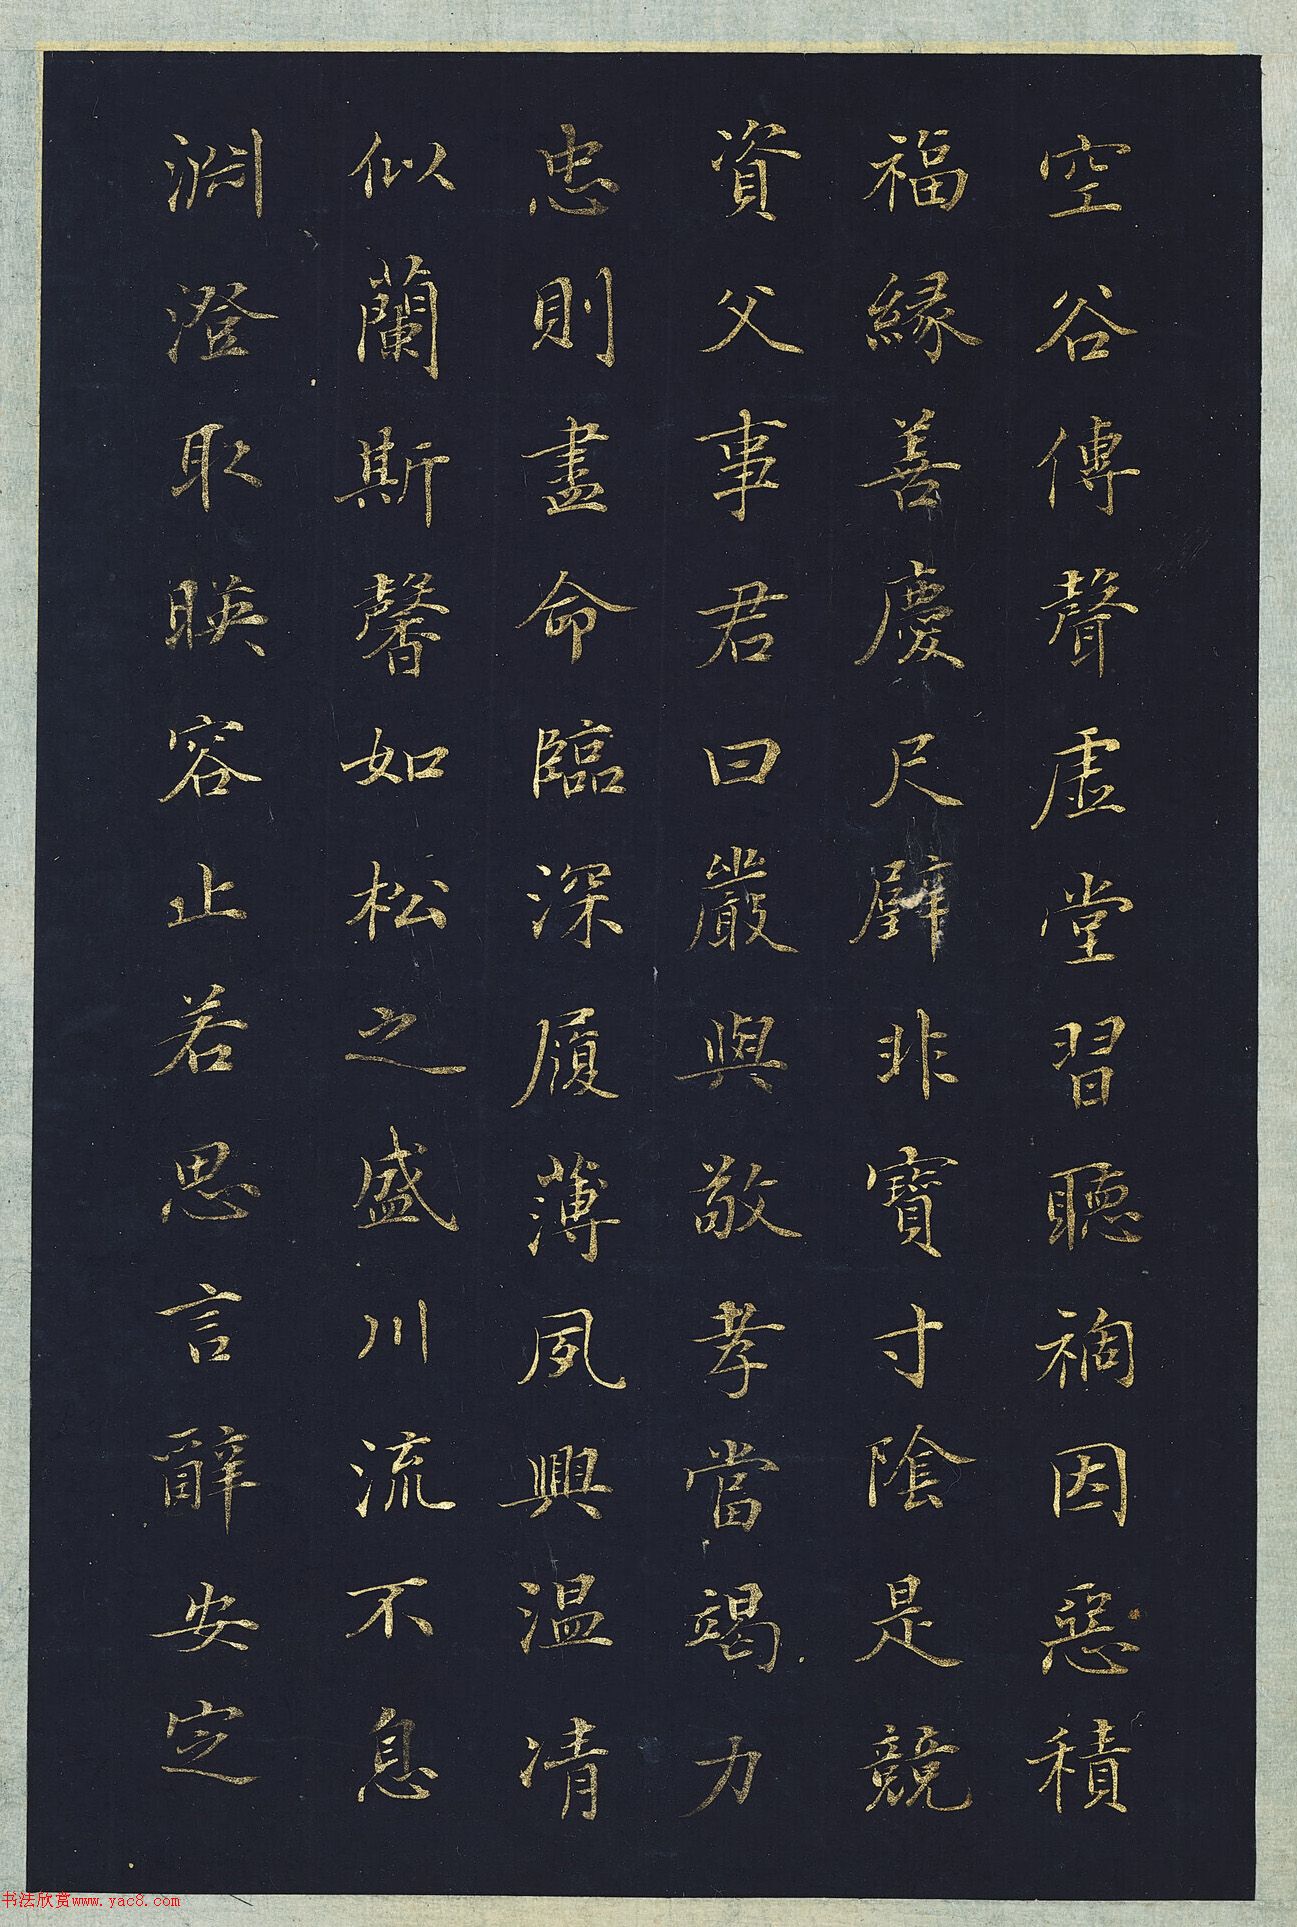 空谷傳聲虛堂習聽禍因惡積
福緣善慶尺璧非寶寸陰是競
資父事君曰嚴與敬孝當竭力
忠則盡命臨深履薄夙興温凊
似蘭斯馨如松之盛川流不息
淵澄取暎容止若思言辭安定
书法欣赏www.yac8.com